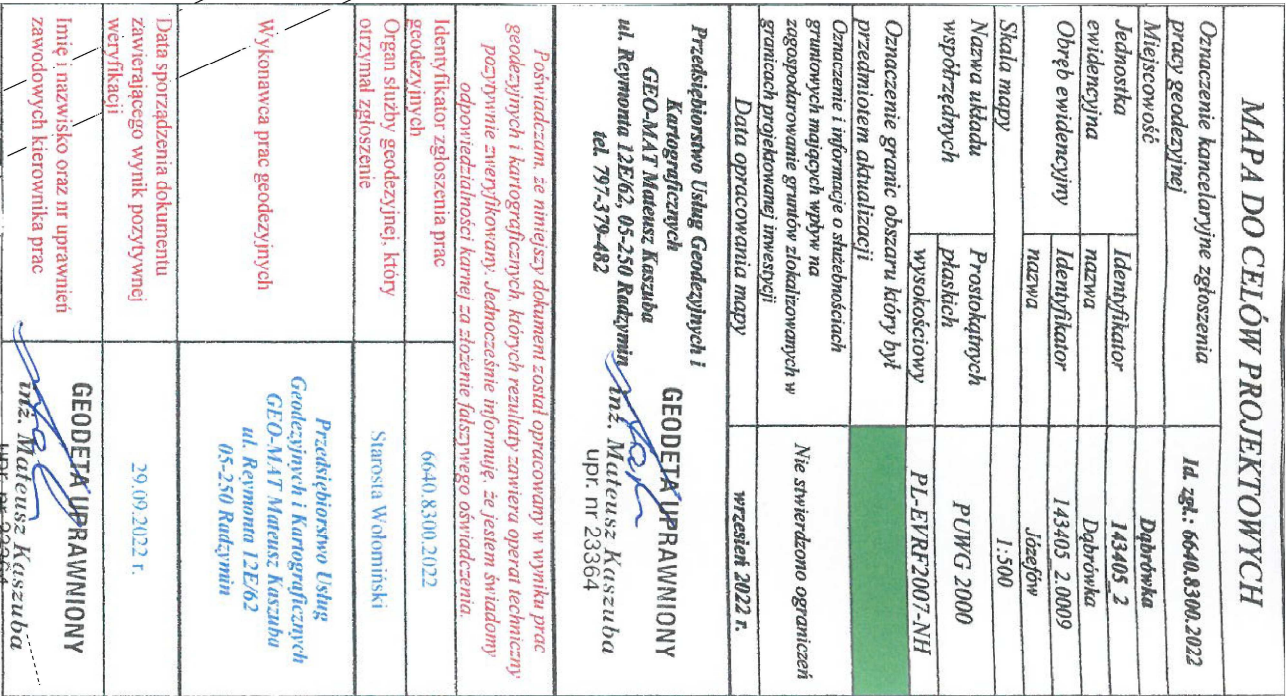 MAPA DO CELÓW PROJEKTOWYCH
Oznaczenie kancelaryjne zgłoszenia
pracy geodezyjnej
Id. zgł.: 6640.8300.2022
Miejscowość
Dąbrówka
Jednostka
ewidencyjna
Identyfikator
143405_2
nazwa
Dąbrówka
Obręb ewidencyjny
Identyfikator
143405_2.0009
nazwa
Józefów
Skala mapy
1:500
Nazwa układu
współrzędnych
Prostokątnych
płaskich
PUWG 2000
wysokościowy
PL-EVRF2007-NH
Oznaczenie granic obszaru który był
przedmiotem aktualizacji
Oznaczenie i informacje o służebnościach
gruntowych mających wpływ na
zagospodarowanie gruntów zlokalizowanych w
granicach projektowanej inwestycji
Nie stwierdzono ograniczeń
Data opracowania mapy
wrzesień 2022 r.
Przedsiębiorstwo Usług Geodezyjnych i
Kartograficznych
GEO-MAT Mateusz Kaszuba
ul. Reymonta 12E/62, 05-250 Radzymin
tel. 797-379-482
GEODETA UPRAWNIONY
inż. Mateusz Kaszuba
upr. nr 23364
Poświadczam, że niniejszy dokument został opracowany w wyniku prac
geodezyjnych i kartograficznych, których rezultaty zawiera operat techniczny
pozytywnie zweryfikowany. Jednocześnie informuję, że jestem świadomy
odpowiedzialności karnej za złożenie fałszywego oświadczenia.
Identyfikator zgłoszenia prac
geodezyjnych
6640.8300.2022
Organ służby geodezyjnej, który
otrzymał zgłoszenie
Starosta Wołomiński
Wykonawca prac geodezyjnych
Przedsiębiorstwo Usług
Geodezyjnych i Kartograficznych
GEO-MAT Mateusz Kaszuba
ul. Reymonta 12E/62
05-250 Radzymin
Data sporządzenia dokumentu
zawierającego wynik pozytywnej
weryfikacji
29.09.2022 r.
Imię i nazwisko oraz nr uprawnień
zawodowych kierownika prac
GEODETA UPRAWNIONY
inż. Mateusz Kaszuba
upr. nr 23364